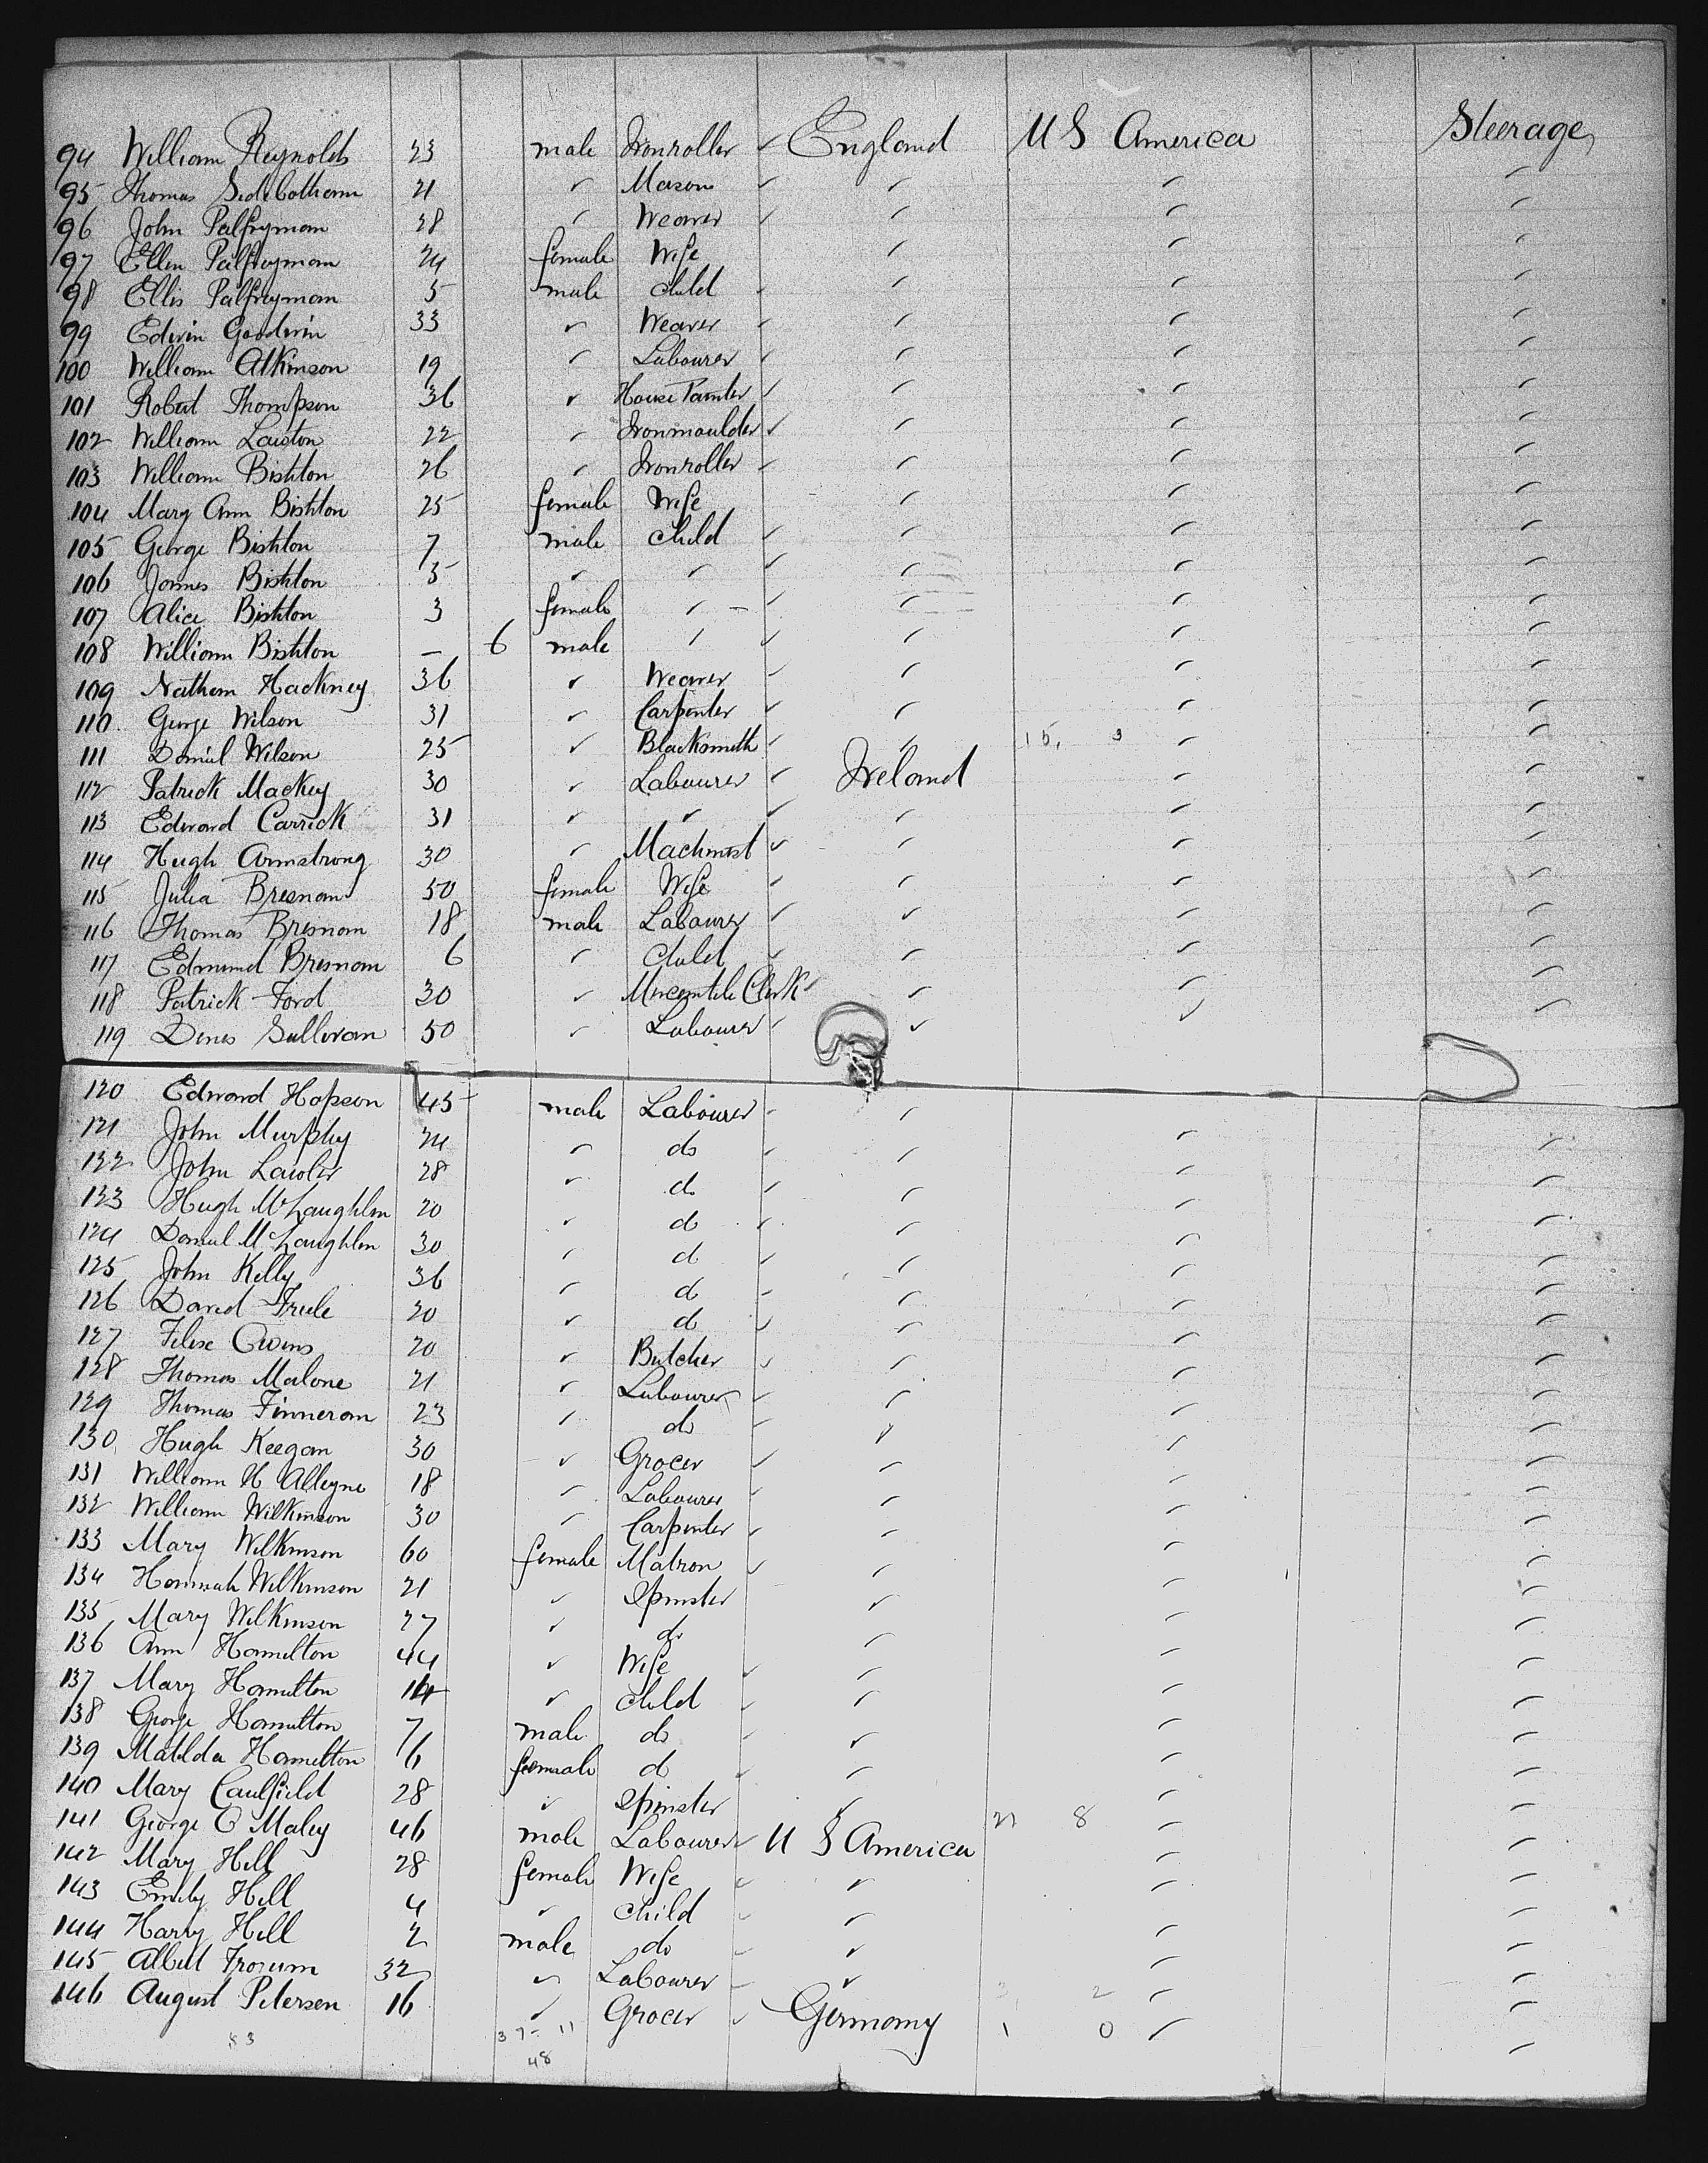 94 William Reynolds 23 male Ironroller ✓ England U S America Steerage
95 Thomas Sidebotham 21 ✓ Mason ✓ ✓ ✓ ✓
96 John Palfryman 28 ✓ Weaver ✓ ✓ ✓ ✓
97 Ellen Palfreyman 24 female Wife ✓ ✓ ✓
98 Ellis Palfreyman 5 male Child ✓ ✓ ✓ ✓
99 Edwin Goodwin 33 ✓ Weaver ✓ ✓ ✓ ✓
100 William Atkinson 19 ✓ Labourer ✓ ✓ ✓ ✓
101 Robert Thompson 36 ✓ House Painter ✓ ✓ ✓ ✓
102 William Lawton 22 ✓ Ironmoulder ✓ ✓ ✓ ✓
103 William Bishton 26 ✓ Ironroller ✓ ✓ ✓ ✓
104 Mary Ann Bishton 25 female Wife ✓ ✓ ✓
105 George Bishton 7 male Child ✓ ✓ ✓ ✓
106 James Bishton 5 ✓ ✓ ✓ ✓ ✓ ✓
107 Alice Bishton 3 female ✓ – ✓ ✓ ✓ ✓
108 William Bishton – 6 male ✓ ✓ ✓ ✓ ✓
109 Nathan Hackney 36 ✓ Weaver ✓ ✓ ✓ ✓
110 George Wilson 31 ✓ Carpenter ✓ ✓ ✓ ✓
111 Daniel Wilson 25 ✓ Blacksmith ✓ ✓ 15, 3 ✓ ✓
112 Patrick Mackey 30 ✓ Labourer ✓ Ireland ✓ ✓
113 Edward Carrick 31 ✓ ✓ ✓ ✓ ✓ ✓
114 Hugh Armstrong 30 ✓ Machinist ✓ ✓ ✓ ✓
115 Julia Bresnan 50 female Wife ✓ ✓ ✓ ✓
116 Thomas Bresnan 18 male Labourer ✓ ✓ ✓ ✓
117 Edmund Bresnan 6 ✓ Child ✓ ✓ ✓ ✓
118 Patrick Ford 30 ✓ Mercantile Clerk ✓ ✓ ✓ ✓
119 Denis Sullivan 50 ✓ Labourer ✓ ✓ ✓ ✓
120 Edward Hopson 45 male Labourer ✓ ✓ ✓ ✓
121 John Murphy 24 ✓ do ✓ ✓ ✓ ✓
122 John Lawler 28 ✓ do ✓ ✓ ✓ ✓
123 Hugh McLaughlin 20 ✓ do ✓ ✓ ✓ ✓
124 Daniel McLaughlin 30 ✓ do ✓ ✓ ✓ ✓
125 John Kelly 36 ✓ do ✓ ✓ ✓ ✓
126 David Friele 20 ✓ do ✓ ✓ ✓ ✓
127 Felix Owens 20 ✓ Butcher ✓ ✓ ✓ ✓
128 Thomas Malone 21 ✓ Labourer ✓ ✓ ✓ ✓
129 Thomas Finneran 23 ✓ do ✓ ✓ ✓ ✓
130 Hugh Keegan 30 ✓ Grocer ✓ ✓ ✓ ✓
131 William H Alleyne 18 ✓ Labourer ✓ ✓ ✓ ✓
132 William Wilkinson 30 ✓ Carpenter ✓ ✓ ✓ ✓
133 Mary Wilkinson 60 female Matron ✓ ✓ ✓ ✓
134 Hannah Wilkinson 21 ✓ Spinster ✓ ✓ ✓
135 Mary Wilkinson 27 ✓ do ✓ ✓ ✓
136 Ann Hamilton 44 ✓ Wife ✓ ✓ ✓ ✓
137 Mary Hamilton 14 ✓ Child ✓ ✓ ✓ ✓
138 George Hamilton 7 male do ✓ ✓ ✓ ✓
139 Matilda Hamilton 6 female do ✓ ✓ ✓ ✓
140 Mary Caulfield 28 ✓ Spinster ✓ ✓ ✓
141 George O Maley 46 male Labourer ✓ U S America 21 8 ✓ ✓
142 Mary Hill 28 female Wife ✓ ✓ ✓ ✓
143 Emily Hill 4 ✓ Child ✓ ✓ ✓ ✓
144 Harry Hill 2 male do ✓ ✓ ✓ ✓
145 Albert 32 ✓ Labourer ✓ ✓ 2 ✓ ✓
146 August Petersen 16 ✓ Grocer ✓ Germany 1 0 ✓ ✓
53 37- 11
48